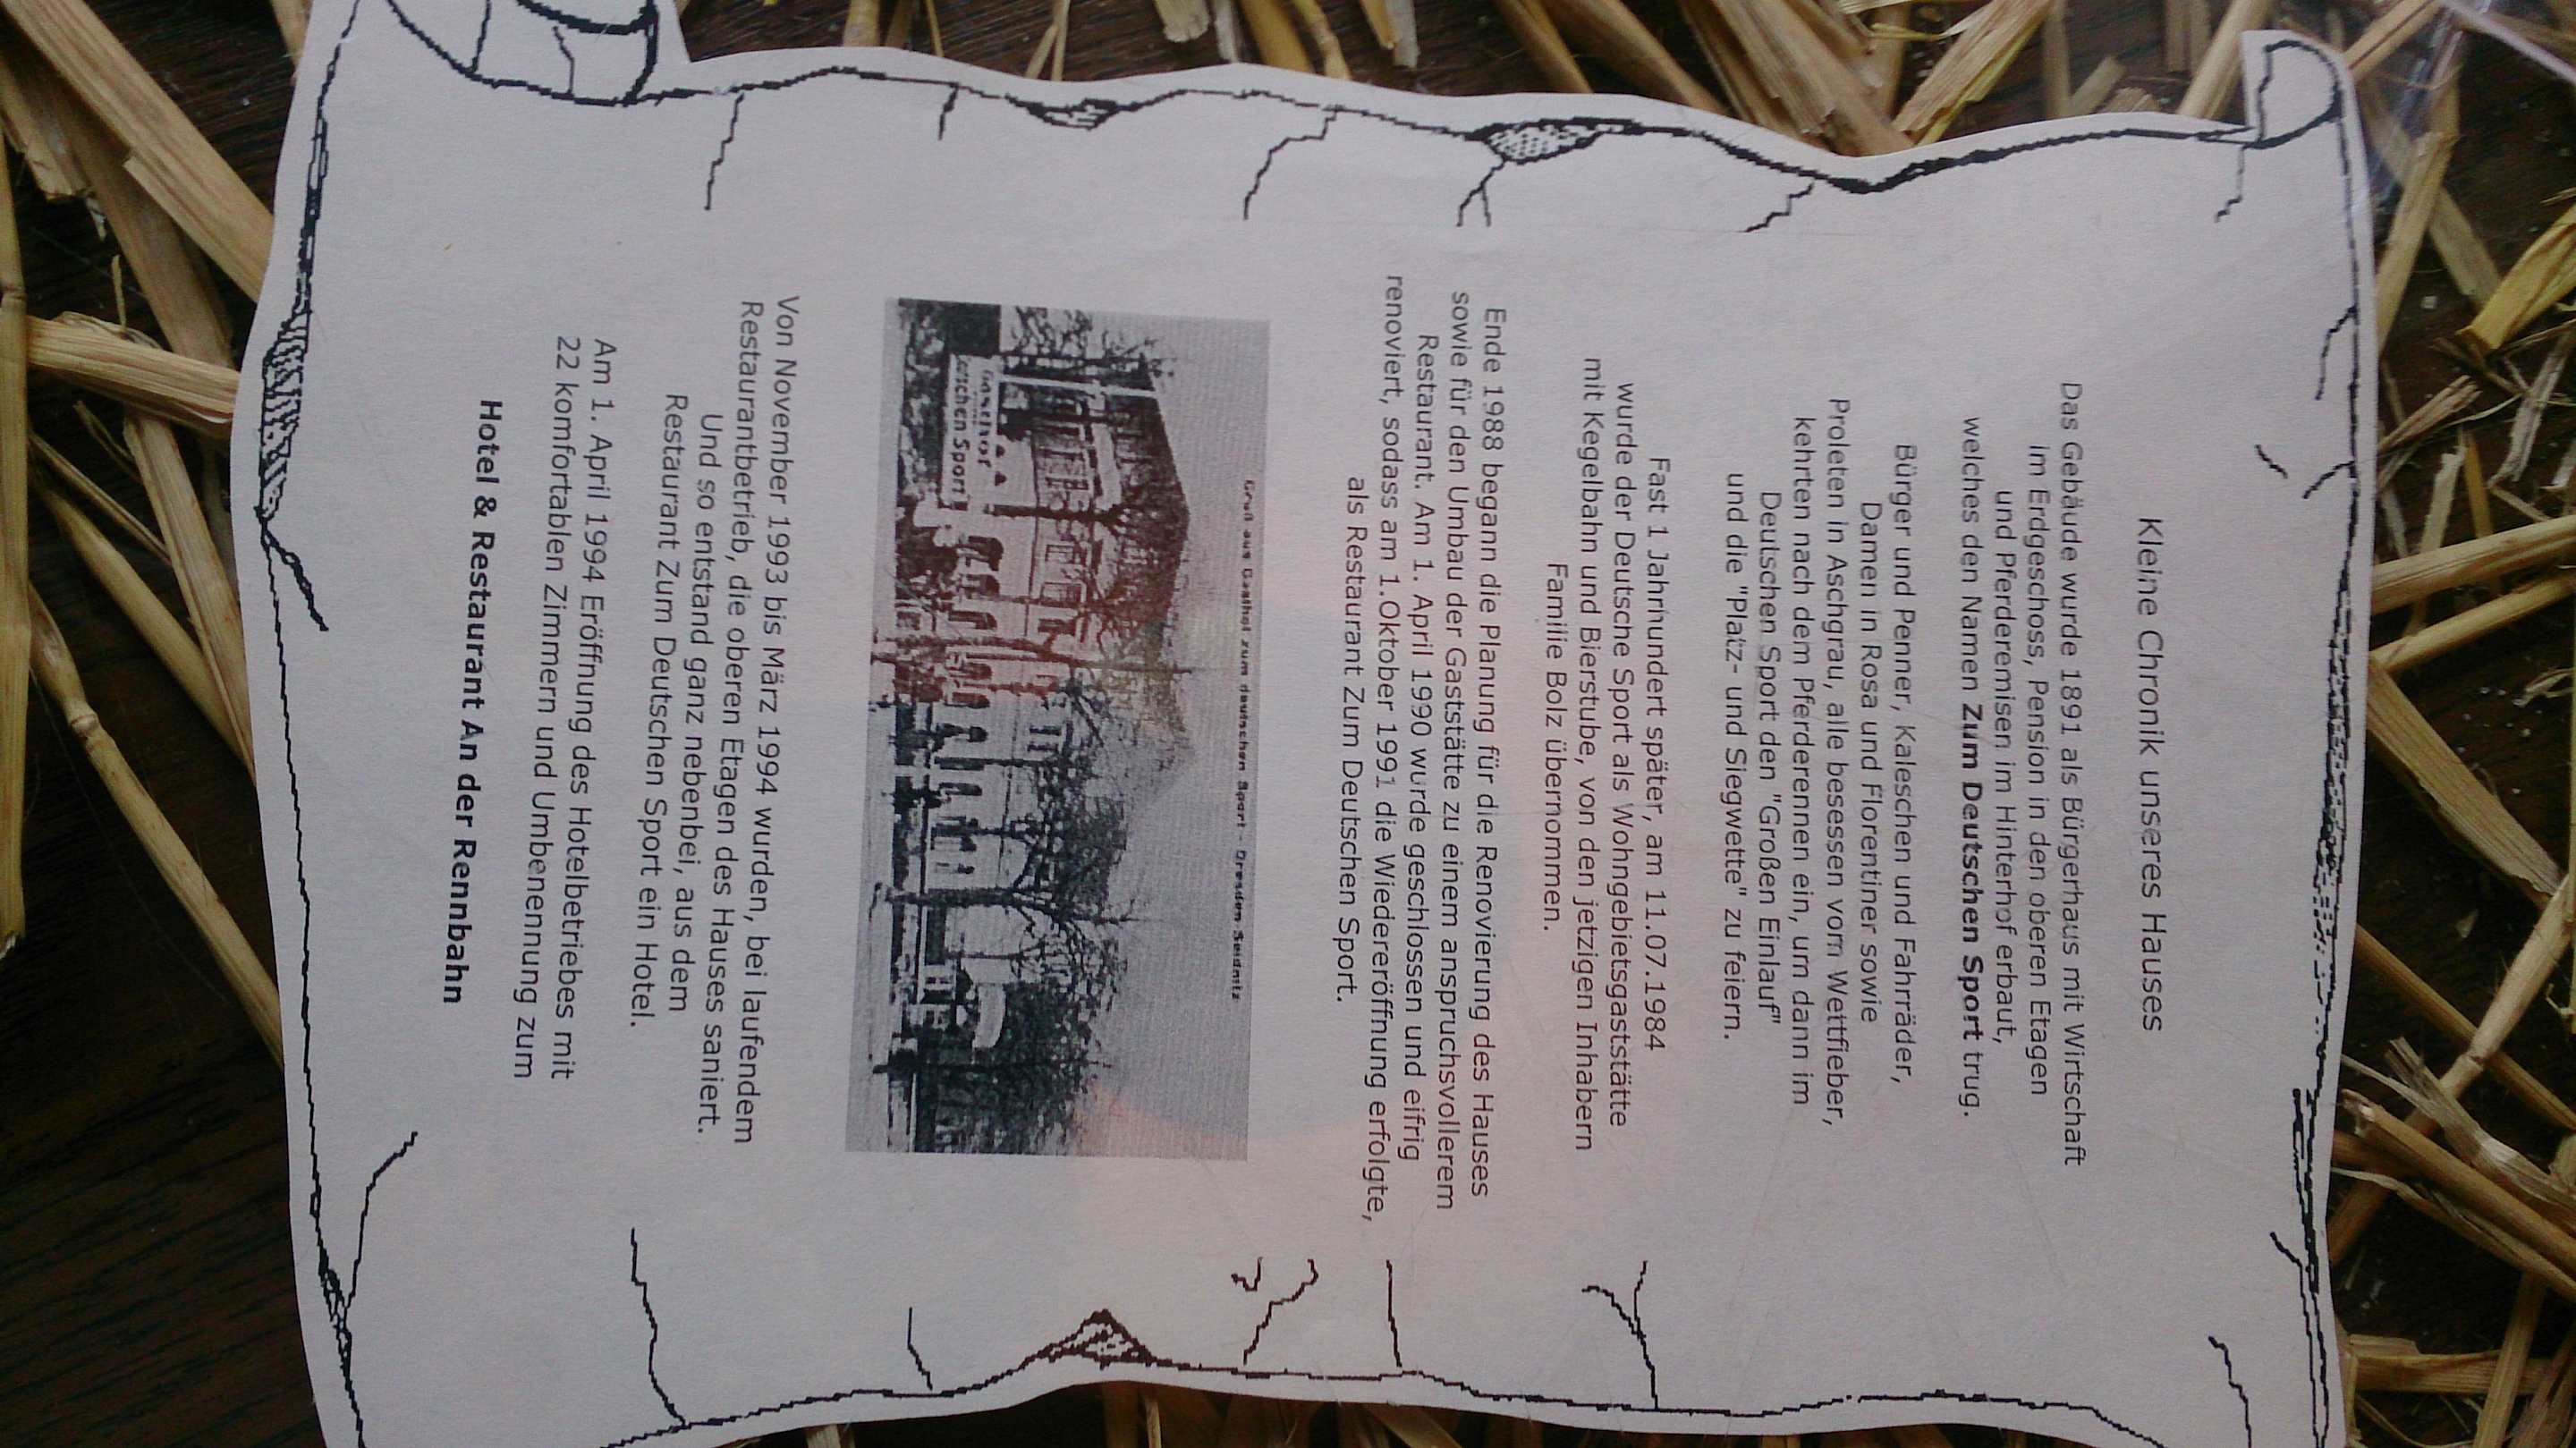 Kleine Chronik unseres Hauses
Das Gebäude wurde 1891 als Bürgerhaus mit Wirtschaft
im Erdgeschoss, Pension in den oberen Etagen
und Pferderemisen im Hinterhof erbaut,
welches den Namen Zum Deutschen Sport trug.
Bürger und Penner, Kaleschen und Fahrräder,
Damen in Rosa und Florentiner sowie
Proleten in Aschgrau, alle besessen vom Wettfieber,
kehrten nach dem Pferderennen ein, um dann im
Deutschen Sport den "Großen Einlauf"
und die "Platz- und Siegwette" zu feiern.
Fast 1 Jahrhundert später, am 11.07.1984
wurde der Deutsche Sport als Wohngebietsgaststätte
mit Kegelbahn und Bierstube, von den jetzigen Inhabern
Familie Bolz übernommen.
Ende 1988 begann die Planung für die Renovierung des Hauses
sowie für den Umbau der Gaststätte zu einem anspruchsvollerem
Restaurant. Am 1. April 1990 wurde geschlossen und eifrig
renoviert, sodass am 1.Oktober 1991 die Wiedereröffnung erfolgte,
als Restaurant Zum Deutschen Sport.
Gruß aus Gasthof zum deutschen Sport - Dresden-Seidnitz
Gasthof
schen Sport
Von November 1993 bis März 1994 wurden, bei laufendem
Restaurantbetrieb, die oberen Etagen des Hauses saniert.
Und so entstand ganz nebenbei, aus dem
Restaurant Zum Deutschen Sport ein Hotel.
Am 1. April 1994 Eröffnung des Hotelbetriebes mit
22 komfortablen Zimmern und Umbenennung zum
Hotel & Restaurant An der Rennbahn